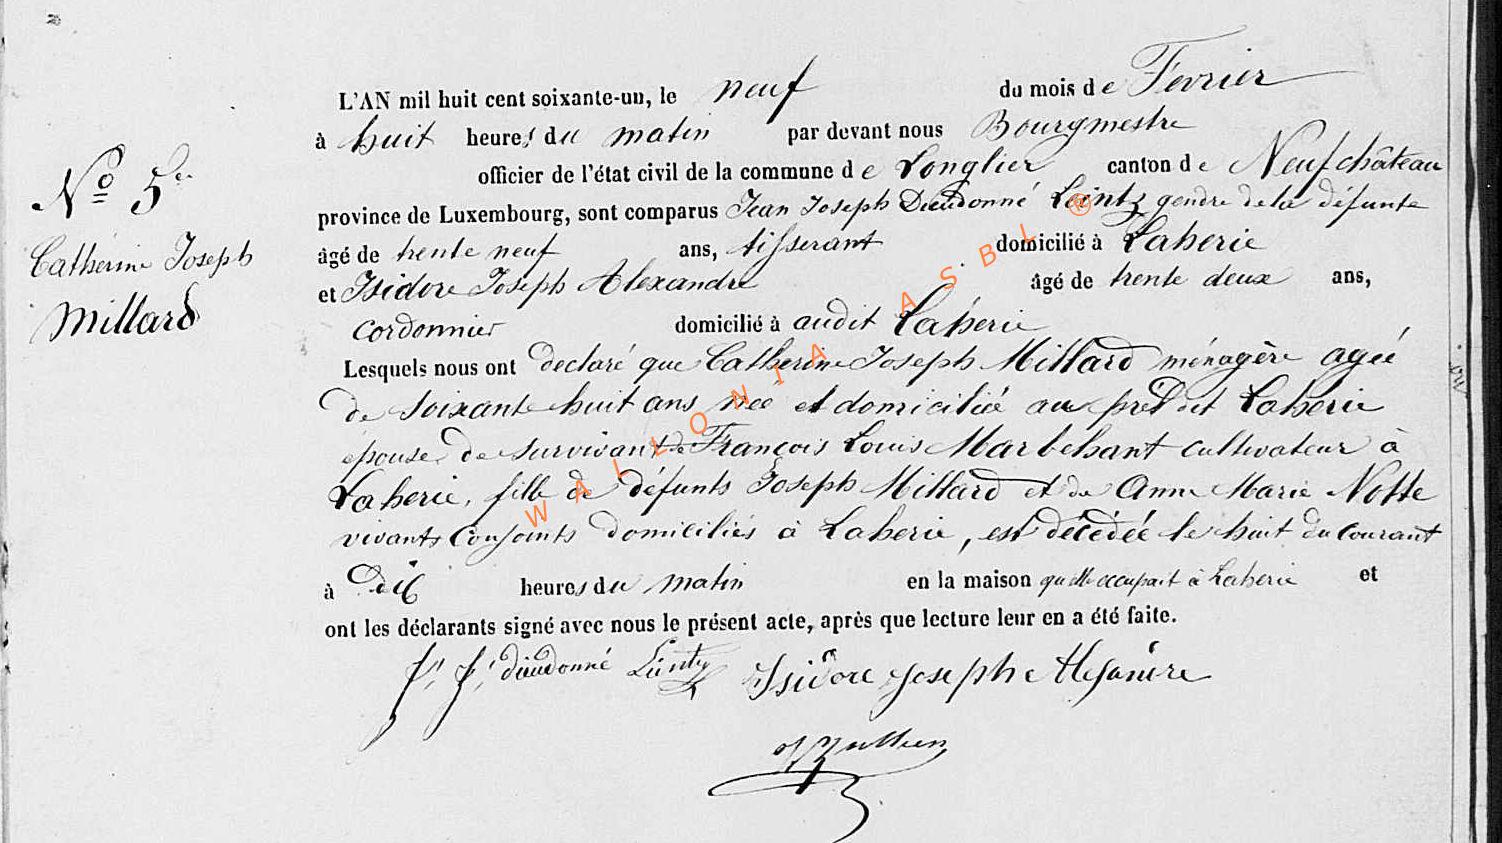 L'AN mil huit cent soixante-un, le neuf du mois de Fevrier
à huit heures du matin par devant nous Bourgmestre
officier de l'état civil de la commune de Longlier canton de Neufchâteau
province de Luxembourg, sont comparus Jean Joseph Dieudonné Leintz gendre de la défunte
âgé de trente neuf ans, tisserant domicilié à Laherie
et Isidore Joseph Alexandre âgé de trente deux ans,
cordonnier domicilié à audit Laherie
Lesquels nous ont declaré que Catherine Joseph Millard ménagère agée
de soixante huit ans née et domiciliée au prédit Laherie
épouse de survivant de François Louis Marbehant cultivateur à
Laherie, fille de défunts Joseph Millard et de Anne Marie Notte
vivants conjoints domiciliés à Laherie, est décédée le huit du courant
à dix heures du matin en la maison qu'elle occupait à Laherie et
ont les déclarants signé avec nous le présent acte, après que lecture leur en a été faite.
J. J. dieudonné Lintz Isidore Joseph Alexandre
No 5
Catherine Joseph
Millard
WALLONIA ASBL ®